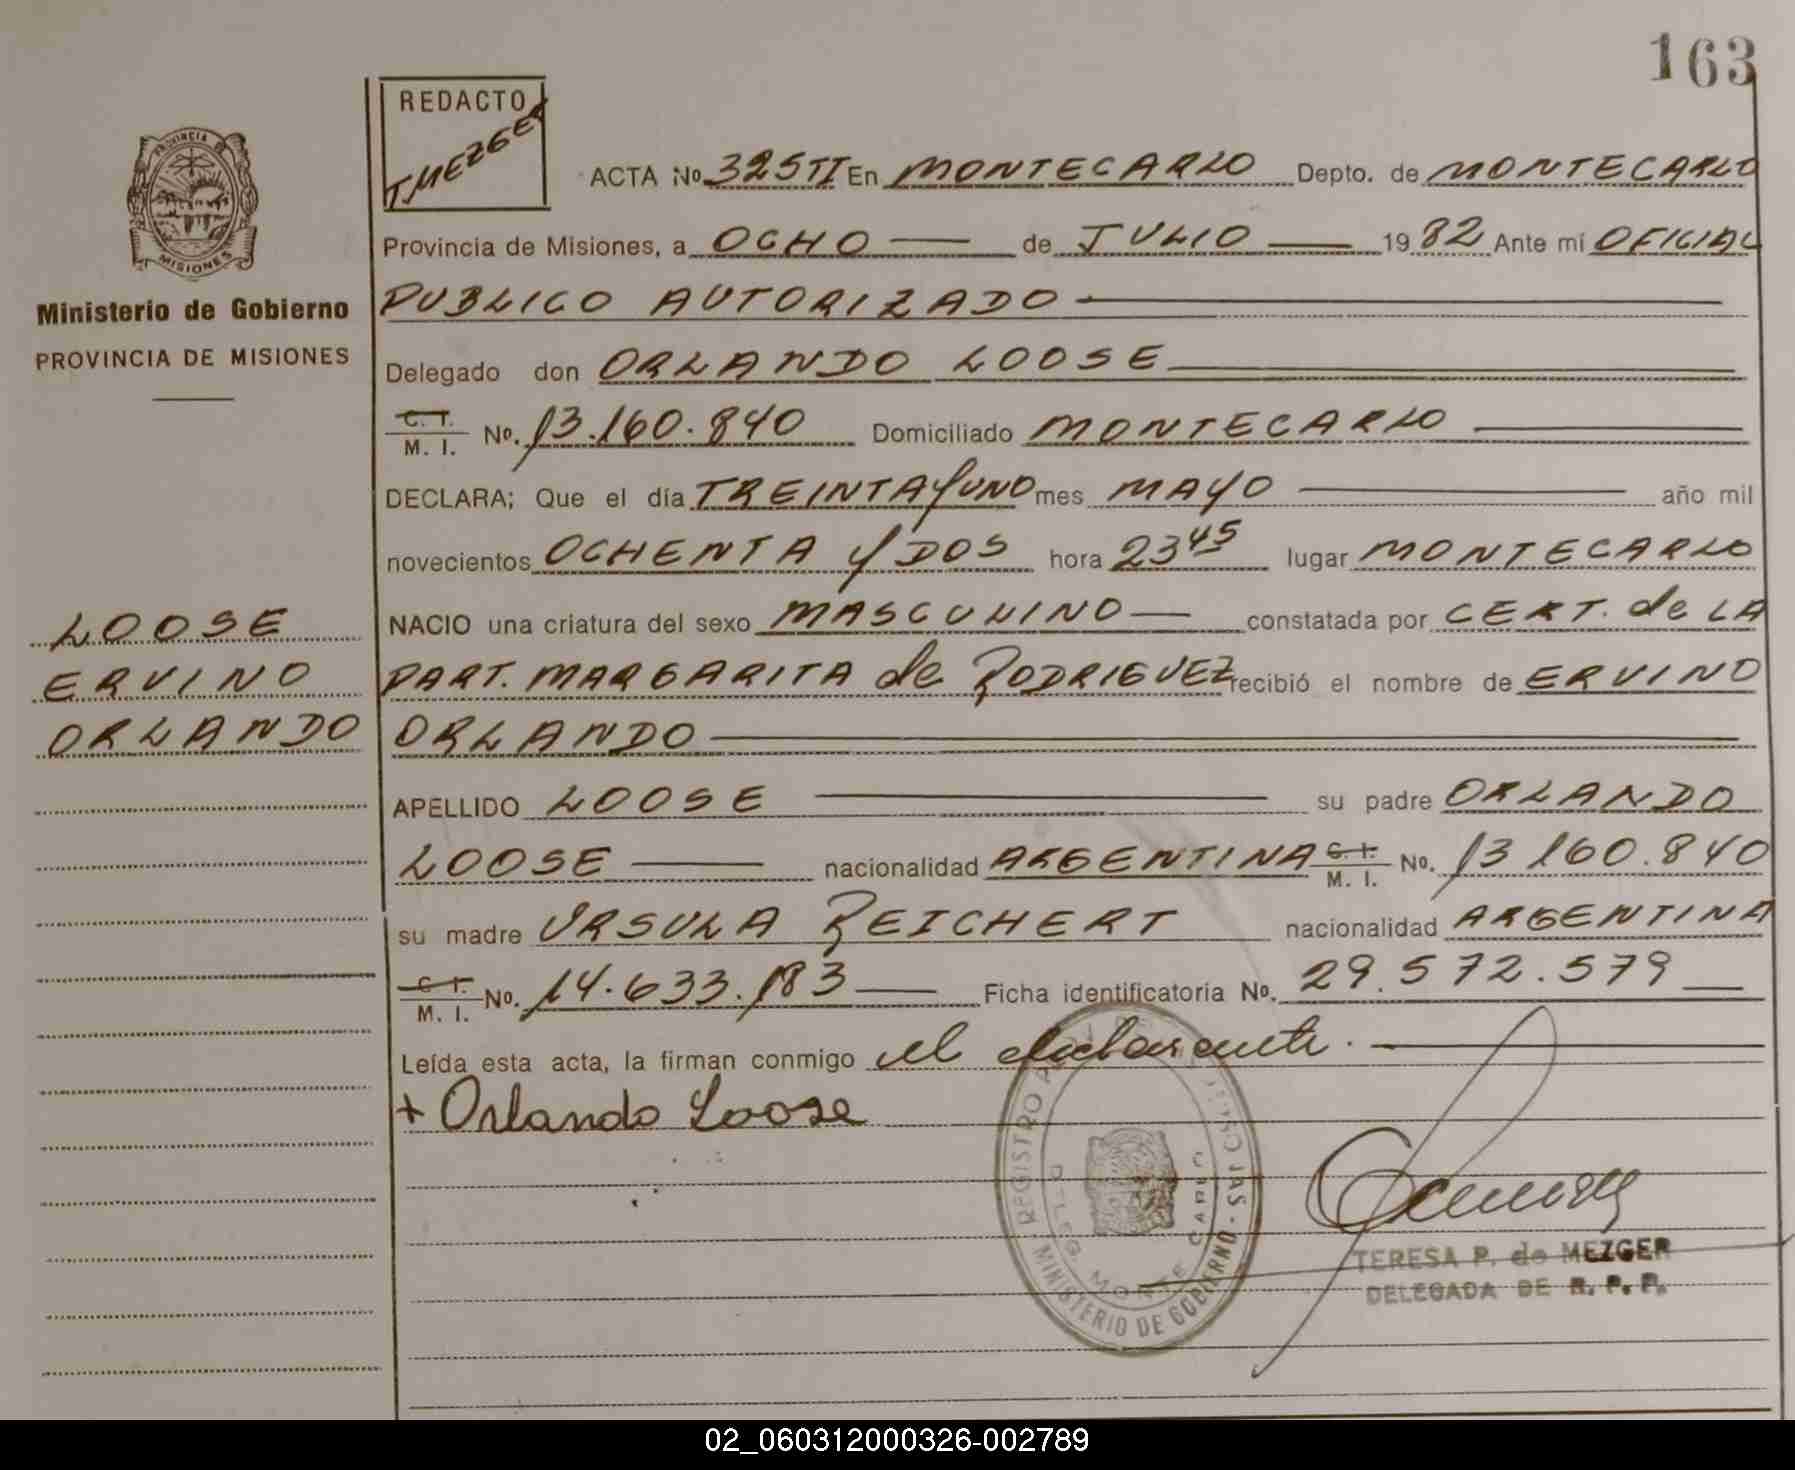 163
REDACTO
T MEZGER
ACTA No 325TI En MONTECARLO Depto. de MONTECARLO
Provincia de Misiones, a OCHO de JULIO 1982 Ante mí OFICIAL
PUBLICO AUTORIZADO
Delegado don ORLANDO LOOSE
C. I.
M. I. No. 13.160.840 Domiciliado MONTECARLO
DECLARA; Que el día TREINTA Y UNO mes MAYO año mil
novecientos OCHENTA Y DOS hora 23 45 lugar MONTECARLO
NACIO una criatura del sexo MASCULINO constatada por CERT. de LA
PART. MARGARITA de RODRIGUEZ recibió el nombre de ERVINO
ORLANDO
APELLIDO LOOSE su padre ORLANDO
LOOSE nacionalidad ARGENTINA C. I. M. I. No. 13 160.840
su madre URSULA REICHERT nacionalidad ARGENTINA
C. I.
M. I. No. 14.633.183 Ficha identificatoria No. 29.572.579
Leída esta acta, la firman conmigo el declarante.
+ Orlando Loose
TERESA P. de MEZGER
DELEGADA DE R. P. P.
REGISTRO
MINISTERIO DE GOBIERNO
PROVINCIA DE
MISIONES
Ministerio de Gobierno
PROVINCIA DE MISIONES
LOOSE
ERVINO
ORLANDO
02_060312000326-002789